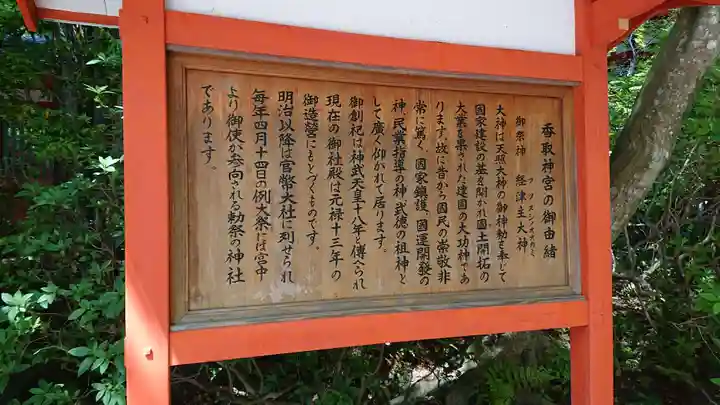 香取神宮の御由緒
フツヌシノオオカミ
御祭神 経津主大神
大神は天照大神の御神勅を奉して
国家建設の基を開かれ國土開拓の
大業を果された建国の大功神であ
ります。故に昔から国民の崇敬非
常に篤く、國家鎮護、國運開發の
神、民業指導の神、武徳の祖神と
して廣く仰かれて居ります。
御創祀は神武天皇十八年と傳へられ
現在の御社殿は元禄十三年の
御造営にもとづくものです。
明治以降は官幣大社に列せられ
毎年四月十四日の例大祭には宮中
より御使が参向される勅祭の神社
であります。